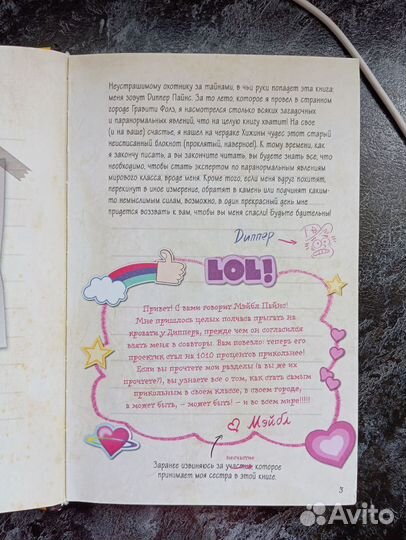 Неустрашимому охотнику за тайнами, в чьи руки попадет эта книга:
меня зовут Диппер Пайнс. За то лето, которое я провел в странном
городе Гравити Фолз, я насмотрелся столько всяких загадочных
и паранормальных явлений, что на целую книгу хватит! На свое
(и на ваше) счастье, я нашел на чердаке Хижины чудес этот старый
неисписанный блокнот (проклятый, наверное!). К тому времени, как
я закончу писать, а вы закончите читать, вы будете знать все, что
необходимо, чтобы стать экспертом по паранормальным явлениям
мирового класса, вроде меня. Кроме того, если меня вдруг похитят,
перекинут в иное измерение, обратят в камень или подчинят каким-
то немыслимым силам, возможно, в один прекрасный день мне
придется воззвать к вам, чтобы вы меня спасли! Будьте бдительны!
Диппер
LOL!
Привет! С вами говорит Мэйбл Пайнс!
Мне пришлось целых полчаса прыгать на
кровати у Диппера, прежде чем он согласился
взять меня в соавторы. Вам повезло: теперь его
проектик стал на 1010 процентов прикольнее!
Если вы прочтете мои разделы (а вы же их
прочтете?), вы узнаете все о том, как стать самым
прикольным в своем классе, в своем городе,
а может быть, — может быть! — и во всем мире!!!!!
Мэйбл
несчастие
Заранее извиняюсь за участие, которое
принимает моя сестра в этой книге.
3
Avito